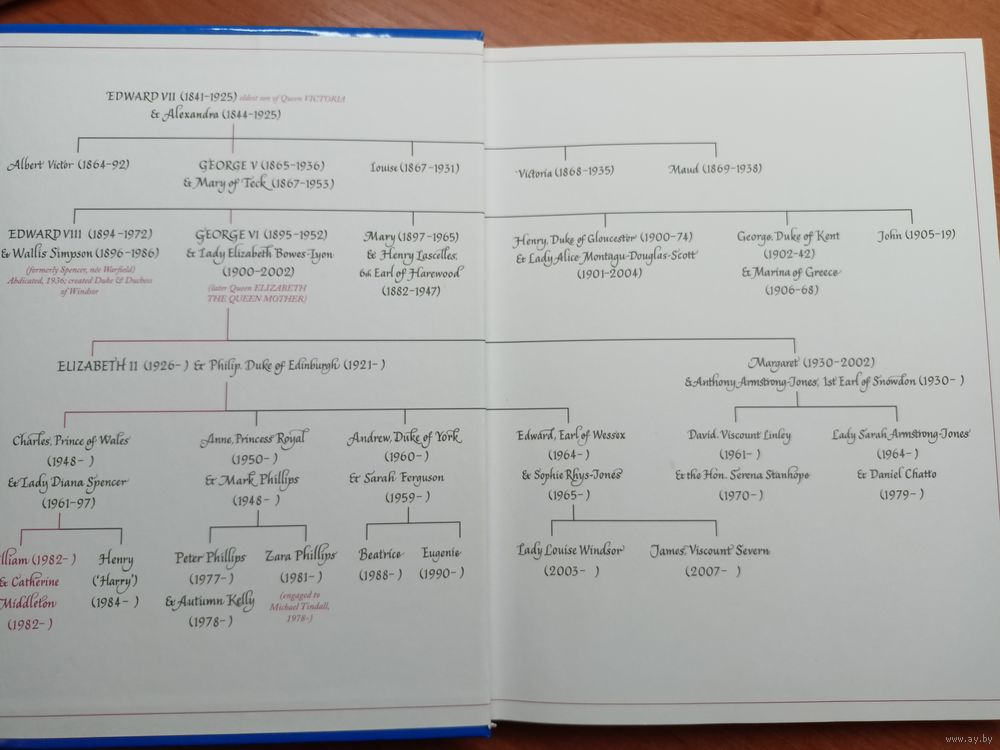 EDWARD VII (1841-1925) eldest son of Queen VICTORIA
& Alexandra (1844-1925)
Albert Victor (1864-92)
GEORGE V (1865-1936)
& Mary of Teck (1867-1953)
Louise (1867-1931)
Victoria (1868-1935)
Maud (1869-1938)
EDWARD VIII (1894-1972)
& Wallis Simpson (1896-1986)
(formerly Spencer, née Warfield)
Abdicated, 1936; created Duke & Duchess
of Windsor
GEORGE VI (1895-1952)
& Lady Elizabeth Bowes-Lyon
(1900-2002)
(later Queen ELIZABETH
THE QUEEN MOTHER)
Mary (1897-1965)
& Henry Lascelles,
6th Earl of Harewood
(1882-1947)
Henry, Duke of Gloucester (1900-74)
& Lady Alice Montagu-Douglas-Scott
(1901-2004)
George, Duke of Kent
(1902-42)
& Marina of Greece
(1906-68)
John (1905-19)
ELIZABETH II (1926- ) & Philip, Duke of Edinburgh (1921- )
Margaret (1930-2002)
& Anthony Armstrong-Jones, 1st Earl of Snowdon (1930- )
Charles, Prince of Wales
(1948- )
& Lady Diana Spencer
(1961-97)
Anne, Princess Royal
(1950- )
& Mark Phillips
(1948- )
Andrew, Duke of York
(1960- )
& Sarah Ferguson
(1959- )
Edward, Earl of Wessex
(1964- )
& Sophie Rhys-Jones
(1965- )
David, Viscount Linley
(1961- )
& the Hon. Serena Stanhope
(1970- )
Lady Sarah Armstrong-Jones
(1964- )
& Daniel Chatto
(1979- )
lliam (1982- )
& Catherine
Middleton
(1982- )
Henry
('Harry')
(1984- )
Peter Phillips
(1977- )
& Autumn Kelly
(1978- )
Zara Phillips
(1981- )
(engaged to
Michael Tindall,
1978-)
Beatrice
(1988- )
Eugenie
(1990- )
Lady Louise Windsor
(2003- )
James, Viscount Severn
(2007- )
www.ay.by